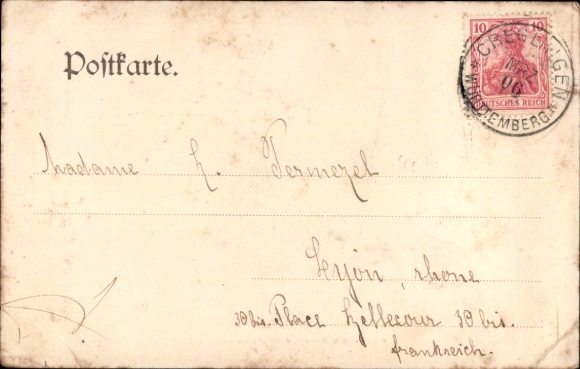 10 10
DEUTSCHES REICH
CREGLINGEN
MRZ
06
WÜRTTEMBERG
Postkarte.
Madame L. Termezel
Lyon, rhone
30 bis. Place Bellecour 30 bis.
frankreich.